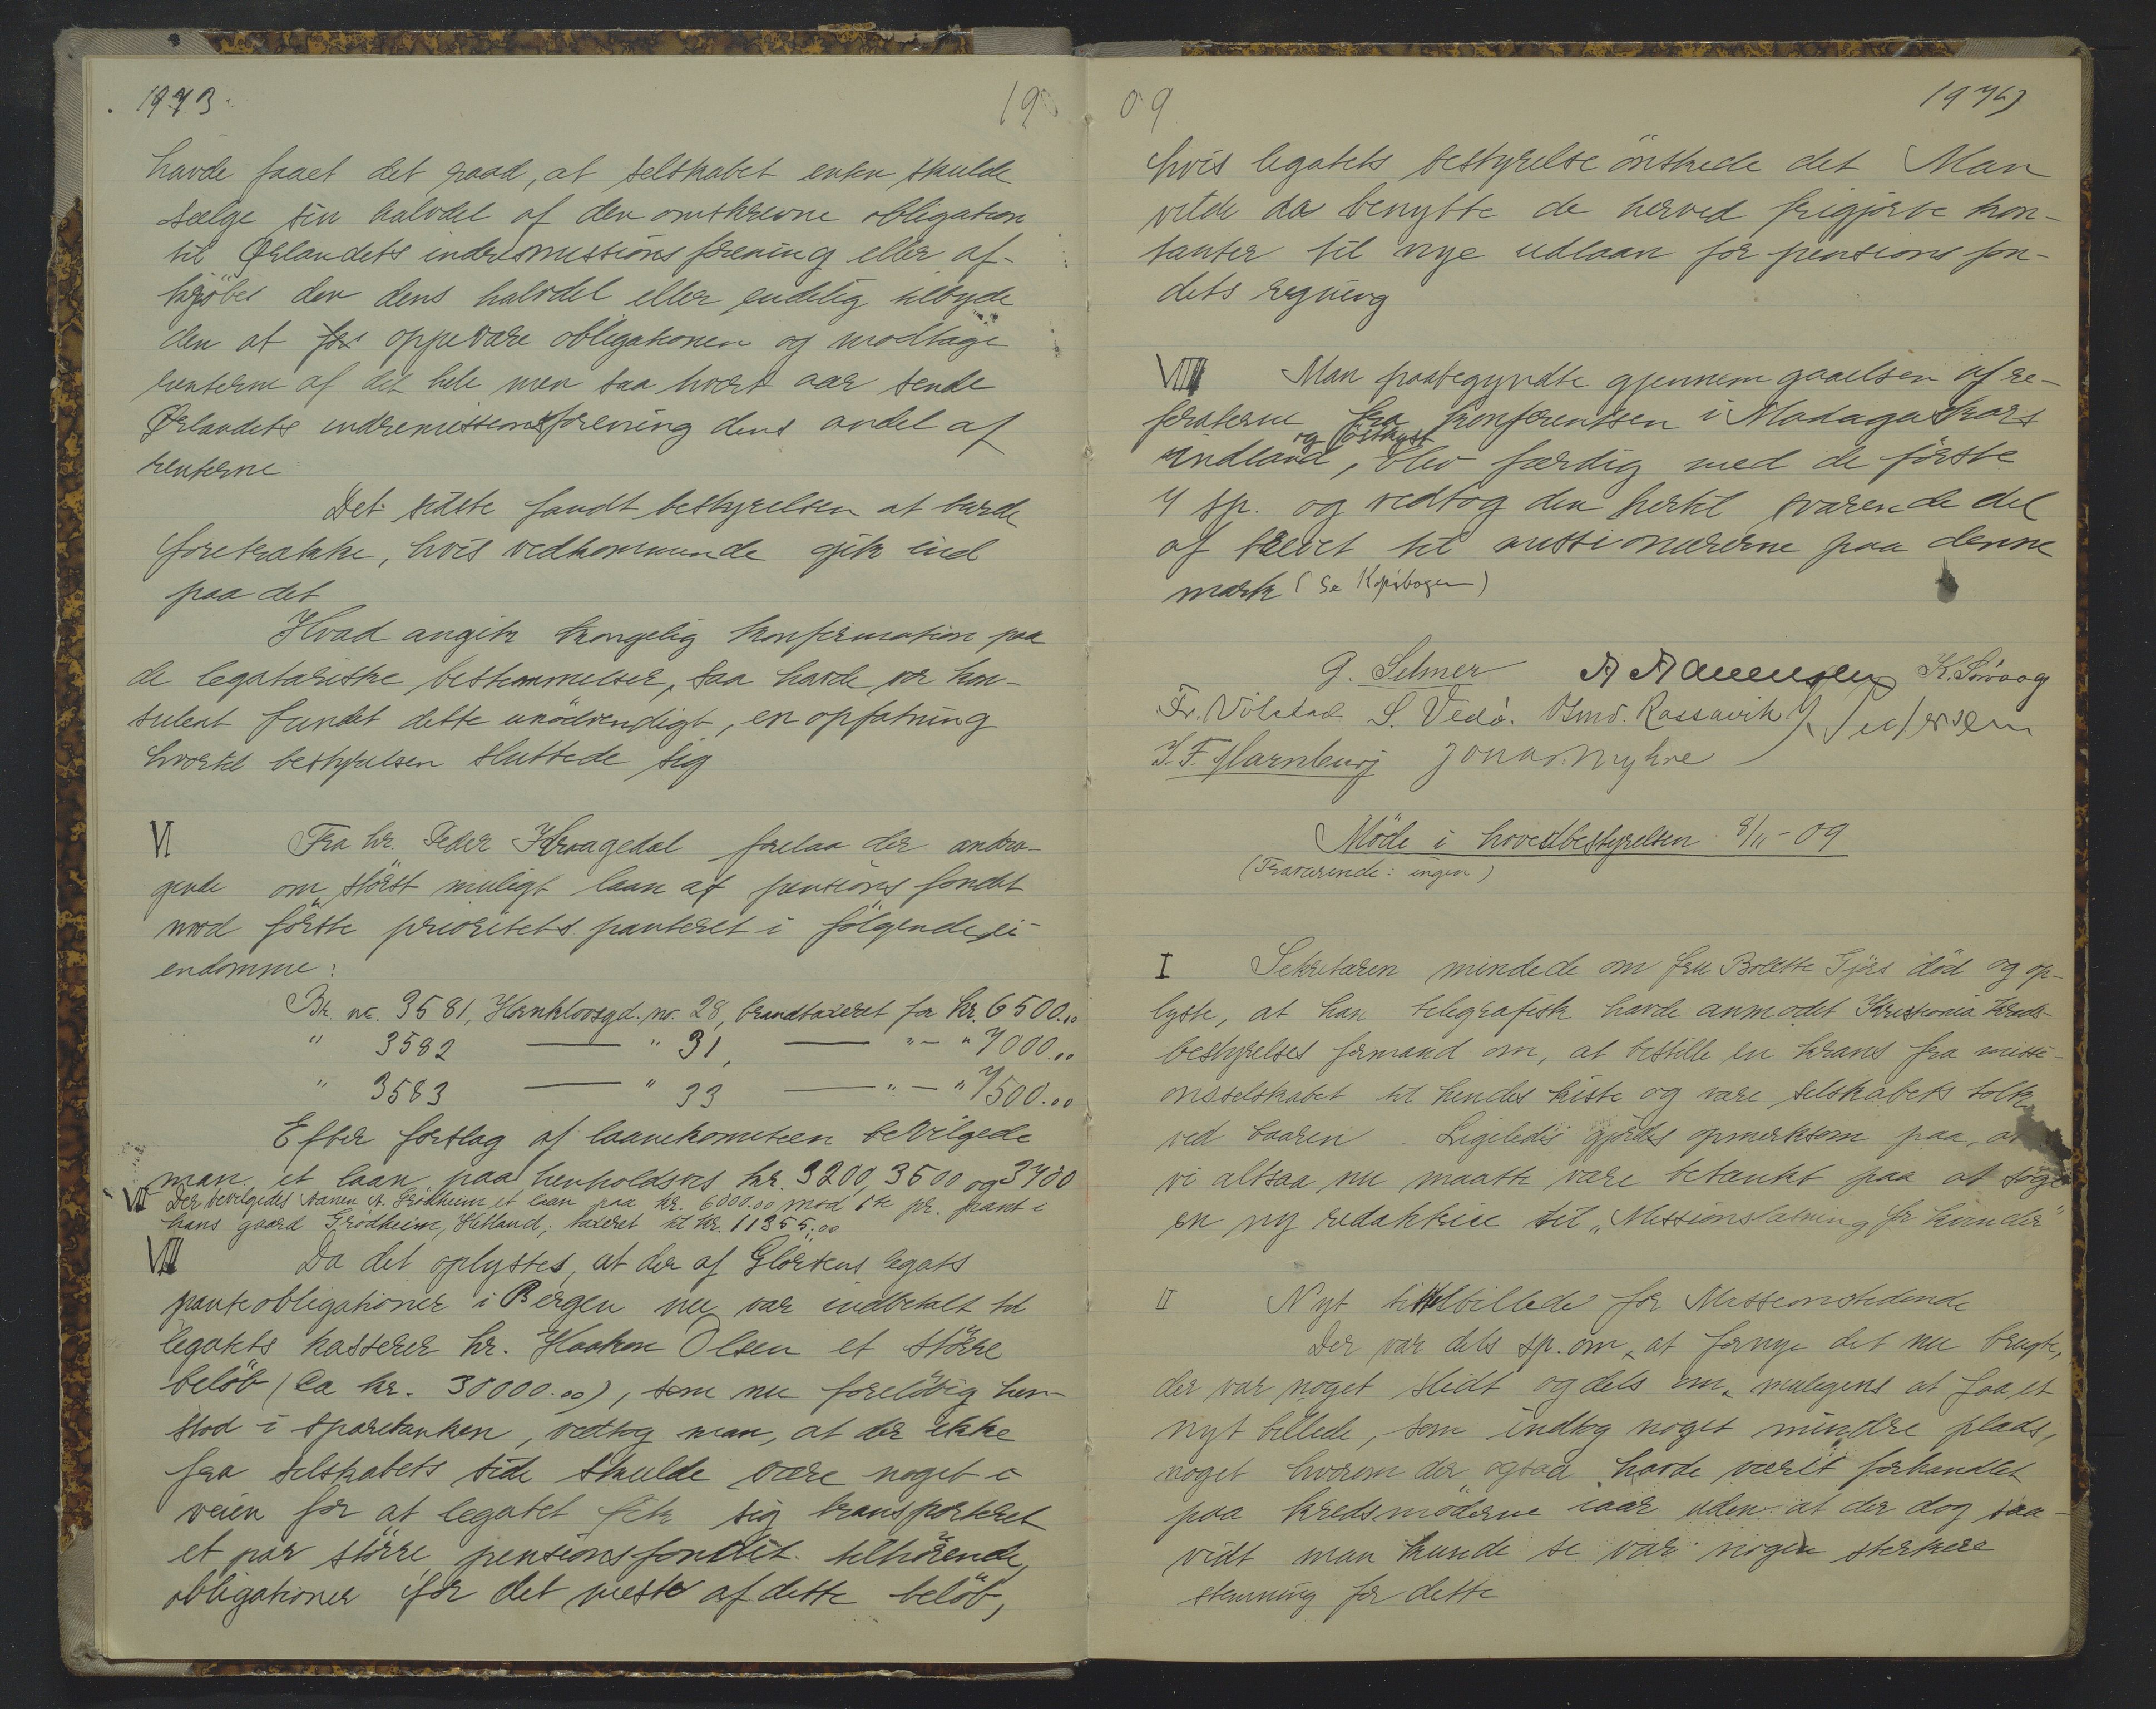 1973.
19
havde faaet det raad, at selskabet enten skulde
sælge sin halvdel af den omskrevne obligation
til Ørlandets indremissionsforening eller af-
kjöbes den dens halvdel eller endelig tilbyde
den at for opevare obligationen og modtage
renterne af det hele men saa hvert aar sende
Ørlandets indremissionsforening dens andel af
renterne
Det sidste fandt bestyrelsen at burde
foretrække, hvis vedkommende gik ind
paa det
Hvad angik kongelig konfirmation paa
de legatariske bestemmelser, saa havde vor kon-
sulent fundet dette unödvendigt, en opfatning
hvortil bestyrelsen sluttede sig
VI Fra hr. Peder Kraagedal forelaa der andra-
gende om störst muligt laan af pensions fondet
mod förste prioritets panteret i fölgende ei-
endomme:
Br. nr. 3581, Hankloosgd. nr. 28, brandtaxeret for kr. 6500.00
" 3582 — " 31, — " — " 7000.00
" 3583 — " 33 — " — " 7500.00
Efter forslag af laanekomiteen bevilgede
man et laan paa henholdsvis kr. 3200, 3500 og 3700
VII Der bevilgedes A. Grödheim et laan paa kr. 6000.00 mod 1ste pr. pant i
hans gaard Grödheim, Hetland, taxeret til kr. 11355.00
VIII Da det oplystes, at der af Glörsens legats
panteobligationer i Bergen nu var indbetalt til
legatets kasserer hr. Haakon Olsen et större
belöb (ca kr. 30000.00), som nu forelöbig hen-
stod i sparebanken, vedtog man, at der ikke
fra selskabets side skulde være noget i
veien for at legatet fik sig transporteret
et par större pensionsfondet tilhörende
obligationer for det meste af dette belöb,
09
1974)
hvis legatets bestyrelse önskede det Man
vilde da benytte de herved frigjorte kon-
tanter til nye udlaan for pensions fon-
dets regning
VIIII Man paabegyndte gjennemgaaelsen af re-
feraterne fra konferentsen i Madagaskars
indland og östkyst, blev færdig med de förste
4 sp. og vedtog den hertil svarende del
af brevet til missionærerne paa denne
mark (Se Kopibogen)
G. Selmer A Aanensen K. Sövaag
Fr. Völstad S. Vedö. Asmd. Rossavik
J. F. Marnburg Jonas Myhre
Möde i hovedbestyrelsen 8/11-09
(Fraværende: ingen)
I Sekretæren mindede om fru Bolette Gjörs död og op-
lyste, at han telegrafisk havde anmodet Kristiania kreds-
bestyrelses formand om, at bestille en krans fra missi-
onsselskabet til hendes kiste og være selskabets tolk
ved baaren. Ligeledes gjordes opmerksom paa, at
vi altsaa nu maatte være betænkt paa at söge
en ny redaktrice til „Missionslæsning for kvinder"
II Nyt tittelbillede for Missionstidende
Der var dels sp. om, at fornye det nu brugte,
der var noget slidt og dels om, muligens at faa et
nyt billede, som indtog noget mindre plads,
noget hvorom der ogsaa havde været forhandlet
paa kredsmöderne iaar uden at der dog saa-
vidt man kunde se var nogen sterkere
stemning for dette